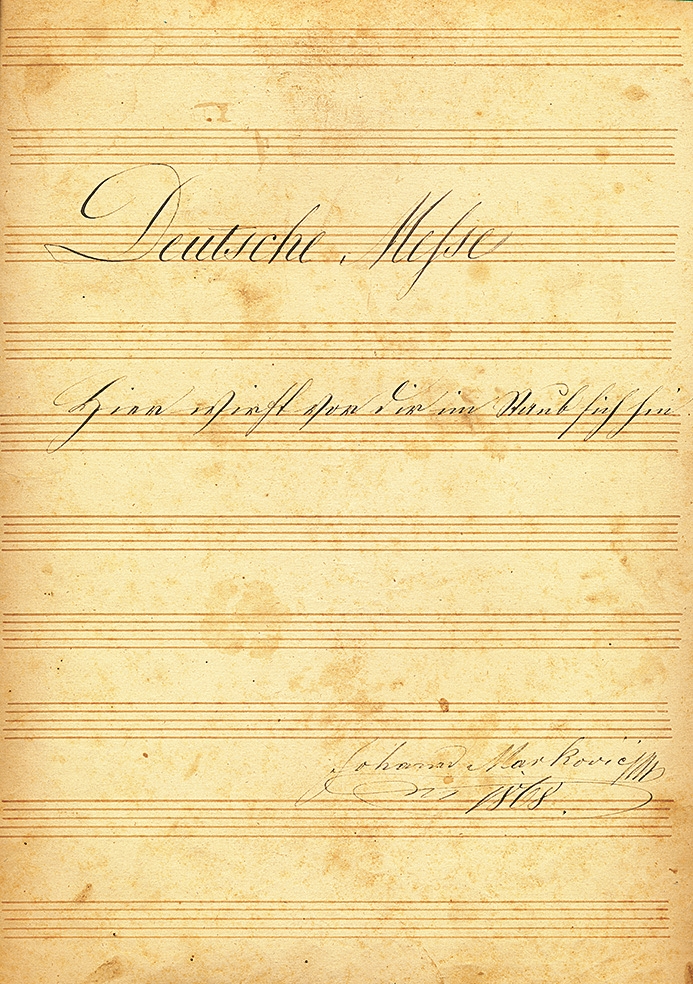 Deutsche Messe
Hier wirft vor dir im Staub sich hin
Johann Marković
1868.